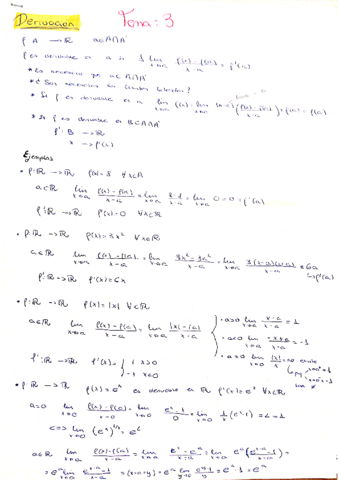 Derivación Tema: 3
f: A → ℝ a∈A∩A'
f es derivable en a si ∃ lim x→a f(x)-f(a)/x-a = f'(a)
* Es necesario que a∈A∩A'
* ¿ Son necesarios los límites laterales?
* Si f es derivable en a lim x→a f(x) = lim x→a (x-a) (f(x)-f(a)/x-a) + f(a) = f(a)
* Si f es derivable en B⊂A∩A'
f': B → ℝ
x → f'(x)
Ejemplos
• f: ℝ → ℝ f(x)=8 ∀x∈ℝ
a∈ℝ lim x→a f(x)-f(a)/x-a = lim x→a 8-8/x-a = lim x→a 0 = 0 = f'(a)
f': ℝ → ℝ f'(x)=0 ∀x∈ℝ
• f: ℝ → ℝ f(x)=3x² ∀x∈ℝ
a∈ℝ lim x→a f(x)-f(a)/x-a = lim x→a 3x²-3a²/x-a = lim x→a 3(x-a)(x+a)/x-a = 6a
f': ℝ → ℝ f'(x)=6x
• f: ℝ → ℝ f(x)=|x| ∀x∈ℝ
• a>0 lim x→a x-a/x-a = 1
a∈ℝ lim x→a f(x)-f(a)/x-a = lim x→a |x|-|a|/x-a
• a<0 lim x→a -x+a/x-a = -1
• a=0 lim x→0 |x|/x no existe
f': ℝ → ℝ f'(x)= { 1 x>0
-1 x<0
• f: ℝ → ℝ f(x)=eˣ es derivable en ℝ f'(x)=eˣ ∀x∈ℝ
a=0 lim x→0 f(x)-f(a)/x-0 = lim x→0 eˣ-1/0 = lim x→0 1/x (eˣ-1) = L = 1
⟺ lim x→0 (eˣ)^1/x = e^L
a∈ℝ lim x→a f(x)-f(a)/x-a = lim x→a eˣ-eᵃ/x-a = lim x→a eᵃ(eˣ⁻ᵃ-1/x-a) =
= eᵃ lim x→a eˣ⁻ᵃ-1/x-a = (x-a=y) = eᵃ lim y→0 eʸ-1/y = eᵃ·1 = eᵃ